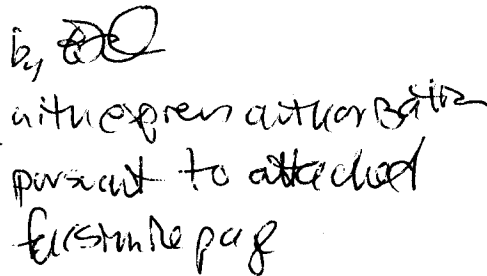 by
with express authorization
pursuant to attached
facsimile page